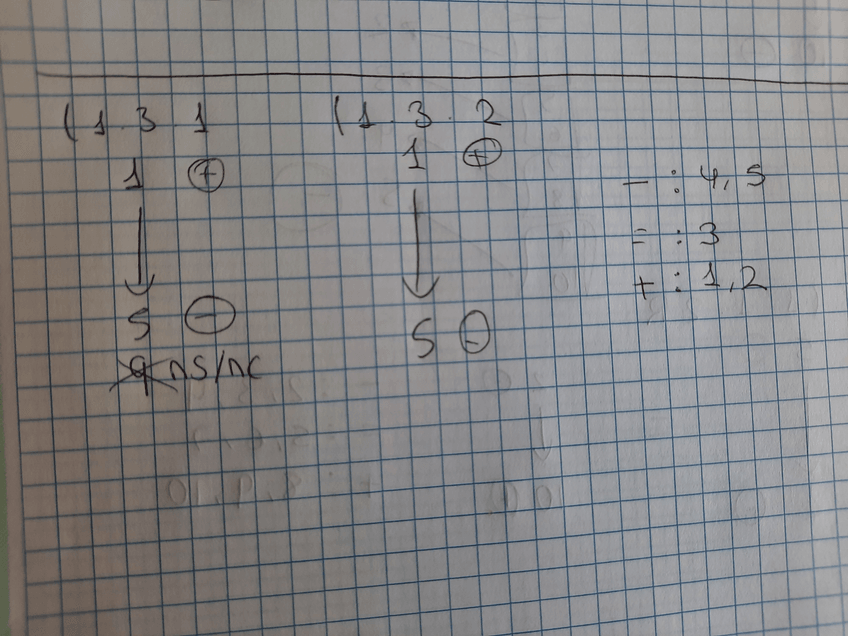 (1.3 1
1 +
5 -
9 ns/nc
(1.3.2
1 +
5 -
- : 4, 5
= : 3
+ : 1, 2